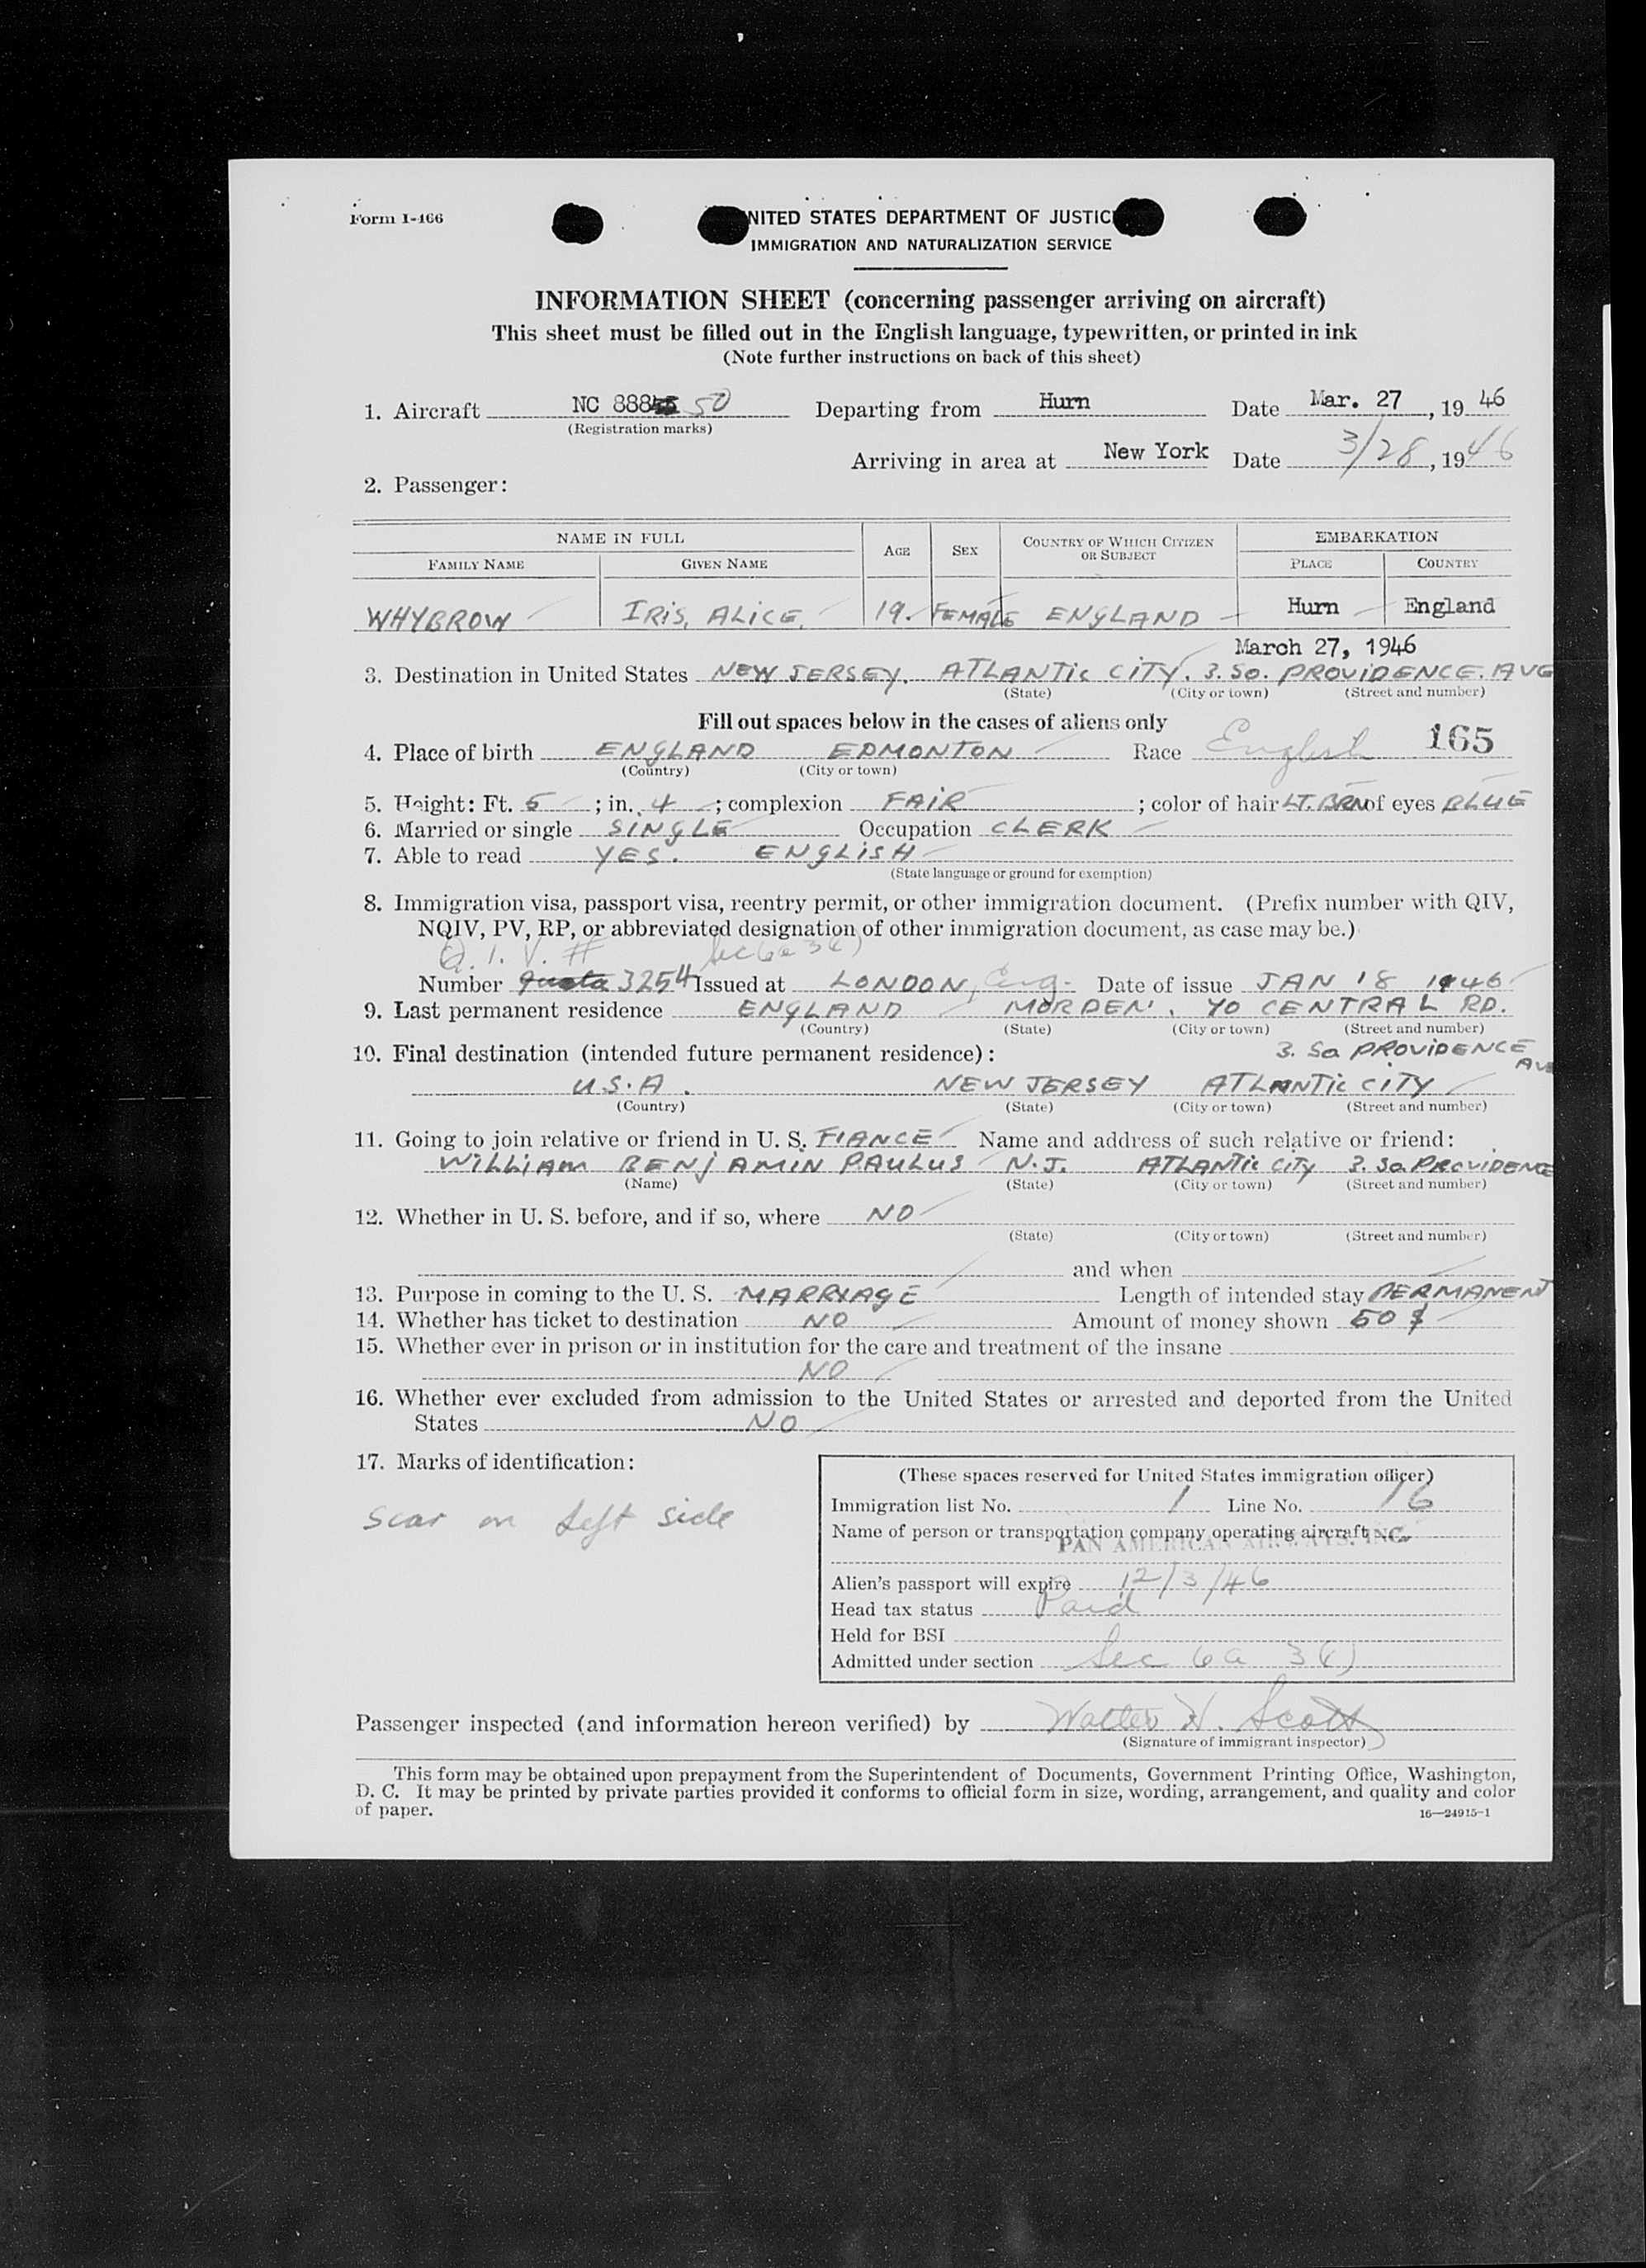 Form I-466
NITED STATES DEPARTMENT OF JUSTIC
IMMIGRATION AND NATURALIZATION SERVICE
INFORMATION SHEET (concerning passenger arriving on aircraft)
This sheet must be filled out in the English language, typewritten, or printed in ink
(Note further instructions on back of this sheet)
1. Aircraft NC 888 50 Departing from Hurn Date Mar. 27, 1946
(Registration marks)
Arriving in area at New York Date 3/28, 1946
2. Passenger:
NAME IN FULL AGE SEX COUNTRY OF WHICH CITIZEN OR SUBJECT EMBARKATION
FAMILY NAME GIVEN NAME PLACE COUNTRY
WHYBROW IRIS, ALICE. 19. FEMALE ENGLAND Hurn England
March 27, 1946
3. Destination in United States NEW JERSEY. ATLANTIC CITY. 3. SO. PROVIDENCE. AVE
(State) (City or town) (Street and number)
Fill out spaces below in the cases of aliens only
4. Place of birth ENGLAND EDMONTON Race English 165
(Country) (City or town)
5. Height: Ft. 5 ; in. 4 ; complexion FAIR ; color of hair LT. BRN of eyes BLUE
6. Married or single SINGLE Occupation CLERK
7. Able to read YES. ENGLISH
(State language or ground for exemption)
8. Immigration visa, passport visa, reentry permit, or other immigration document. (Prefix number with QIV,
NQIV, PV, RP, or abbreviated designation of other immigration document, as case may be.)
Q. I. V. # Sec 6a 3( )
Number quota 3254 Issued at LONDON, Eng. Date of issue JAN 18 1946
9. Last permanent residence ENGLAND MORDEN. 70 CENTRAL RD.
(Country) (State) (City or town) (Street and number)
10. Final destination (intended future permanent residence): 3. So PROVIDENCE AVE
U.S.A. NEW JERSEY ATLANTIC CITY
(Country) (State) (City or town) (Street and number)
11. Going to join relative or friend in U. S. FIANCE Name and address of such relative or friend:
WILLIAM BENJAMIN PAULUS N.J. ATLANTIC CITY 3. So. PROVIDENCE
(Name) (State) (City or town) (Street and number)
12. Whether in U. S. before, and if so, where NO
(State) (City or town) (Street and number)
and when
13. Purpose in coming to the U. S. MARRIAGE Length of intended stay PERMANENT
14. Whether has ticket to destination NO Amount of money shown 50 $
15. Whether ever in prison or in institution for the care and treatment of the insane
NO
16. Whether ever excluded from admission to the United States or arrested and deported from the United
States NO
17. Marks of identification:
Scar on left side
(These spaces reserved for United States immigration officer)
Immigration list No. 1 Line No. 16
Name of person or transportation company operating aircraft
PAN AMERICAN AIRWAYS, INC.
Alien's passport will expire 12/3/46
Head tax status Paid
Held for BSI
Admitted under section Sec 6a 3( )
Passenger inspected (and information hereon verified) by Walter H. Scott
(Signature of immigrant inspector)
This form may be obtained upon prepayment from the Superintendent of Documents, Government Printing Office, Washington,
D. C. It may be printed by private parties provided it conforms to official form in size, wording, arrangement, and quality and color
of paper. 16—24915-1